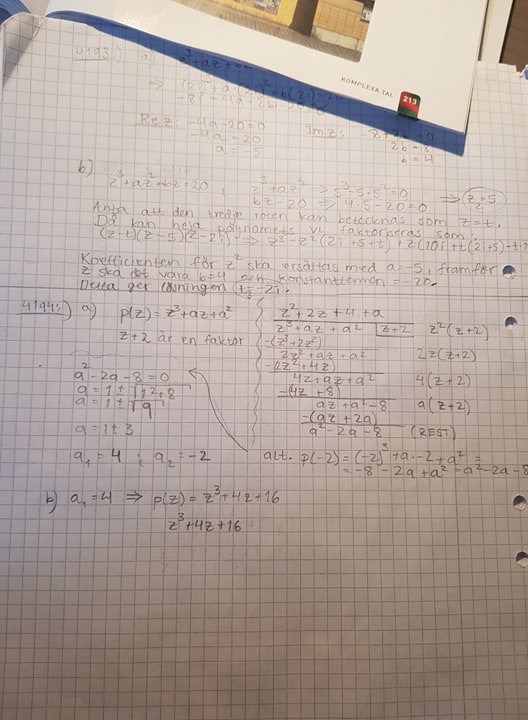 KOMPLEXA TAL 213
4193. a) z³+az²+
⇒ (2i)³+a(2i)²+b(2i)=20
-8i-4a+2bi-20=0
Re z: -4a-20=0
-4a=20
a=-5
Im z:
2b=8
b=4
b) z³+az²+bz=20
z³+az² ⇒ 5³-5·5²=0
bz-20 ⇒ 4·5-20=0
⇒ z₂=5
Anta att den tredje roten kan betecknas som z=t.
Då kan hela polynomets vl faktoriseras som:
(z-t)(z-5)(z-2i) ⇒ z³-z²(2i+5+t)+z(10i+t(2i+5)-t
Koefficienten för z² ska ersättas med a=-5, framför
z ska det vara b=4 och konstanttermen =-20.
Detta ger lösningen t₃=-2i.
4194. a) p(z)=z³+az+a²
z+2 är en faktor
a²-2a-8=0
a=1±√1²+8
a=1±√9
a=1±3
a₁=4 ; a₂=-2
z²+2z+4+a
z³+az+a² z+2 z²(z+2)
-(z³+2z²)
2z²+az+a² 2z(z+2)
-(2z²+4z)
4z+az+a² 4(z+2)
-(4z+8)
az+a²-8 a(z+2)
-(az+2a)
a²-2a-8 (REST)
alt. p(-2)=(-2)³+a·-2+a²=
=-8-2a+a²=a²-2a-8
b) a₁=4 ⇒ p(z)=z³+4z+16
z³+4z+16